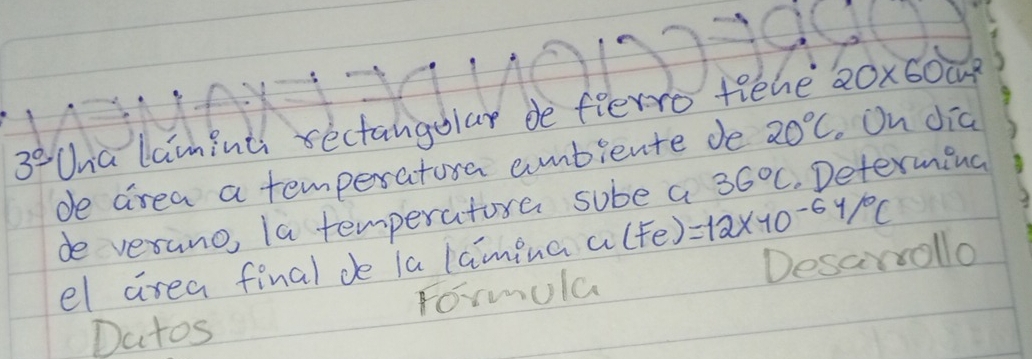 3º Una lámina rectangular de fierro tiene 20x60cm²
de área a temperatura ambiente de 20°C. Un día
de verano, la temperatura sube a 36°C. Determina
el área final de la lámina α(Fe)=12x10⁻⁶ 1/°C
Datos Fórmula Desarrollo